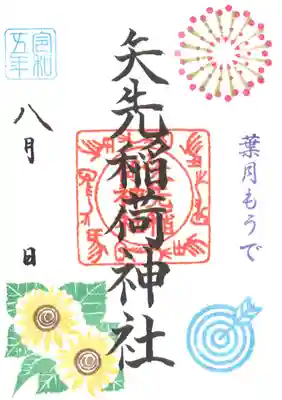 葉月もうで
矢先稲荷神社
令和
五年
八月 日